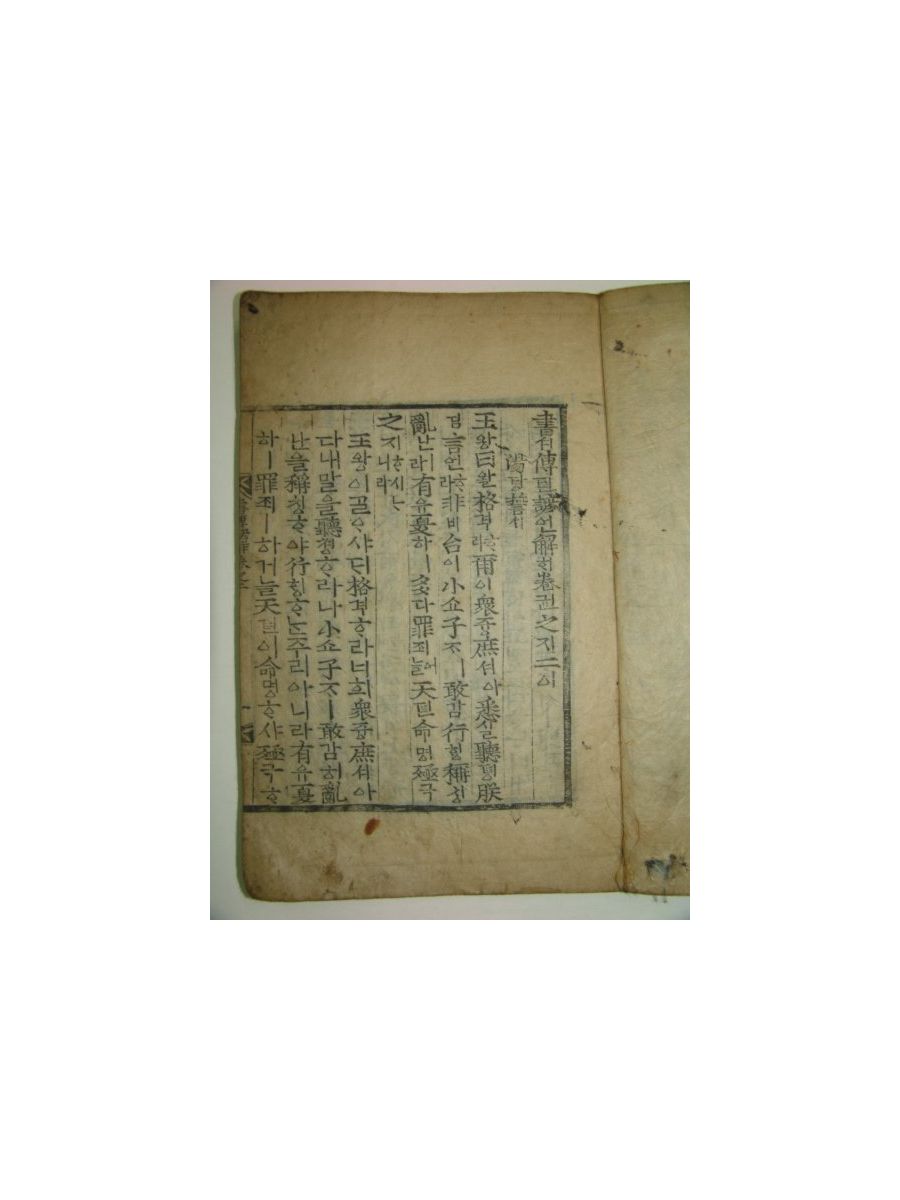 書셔傳뎐諺언解ᄒᆡ卷권之지二이
湯탕誓셔
王왕曰왈格격ᄒᆞ라爾이衆즁庶셔아悉실聽텽朕
딤言언ᄒᆞ라非비台이小쇼子ᄌᆞㅣ敢감行ᄒᆡᆼ稱칭
亂난이라有유夏하ㅣ多다罪죄어늘天텬命명殛극
之지ᄒᆞ시ᄂᆞ니라
王왕이ᄀᆞᆯᄋᆞ샤ᄃᆡ格격ᄒᆞ라너희衆즁庶셔아
다내말을聽텽ᄒᆞ라나小쇼子ᄌᆞㅣ敢감히亂
난을稱칭ᄒᆞ야行ᄒᆡᆼᄒᆞᄂᆞᆫ주리아니라有유夏
하ㅣ罪죄ㅣ하거늘天텬이命명ᄒᆞ샤殛극ᄒᆞ